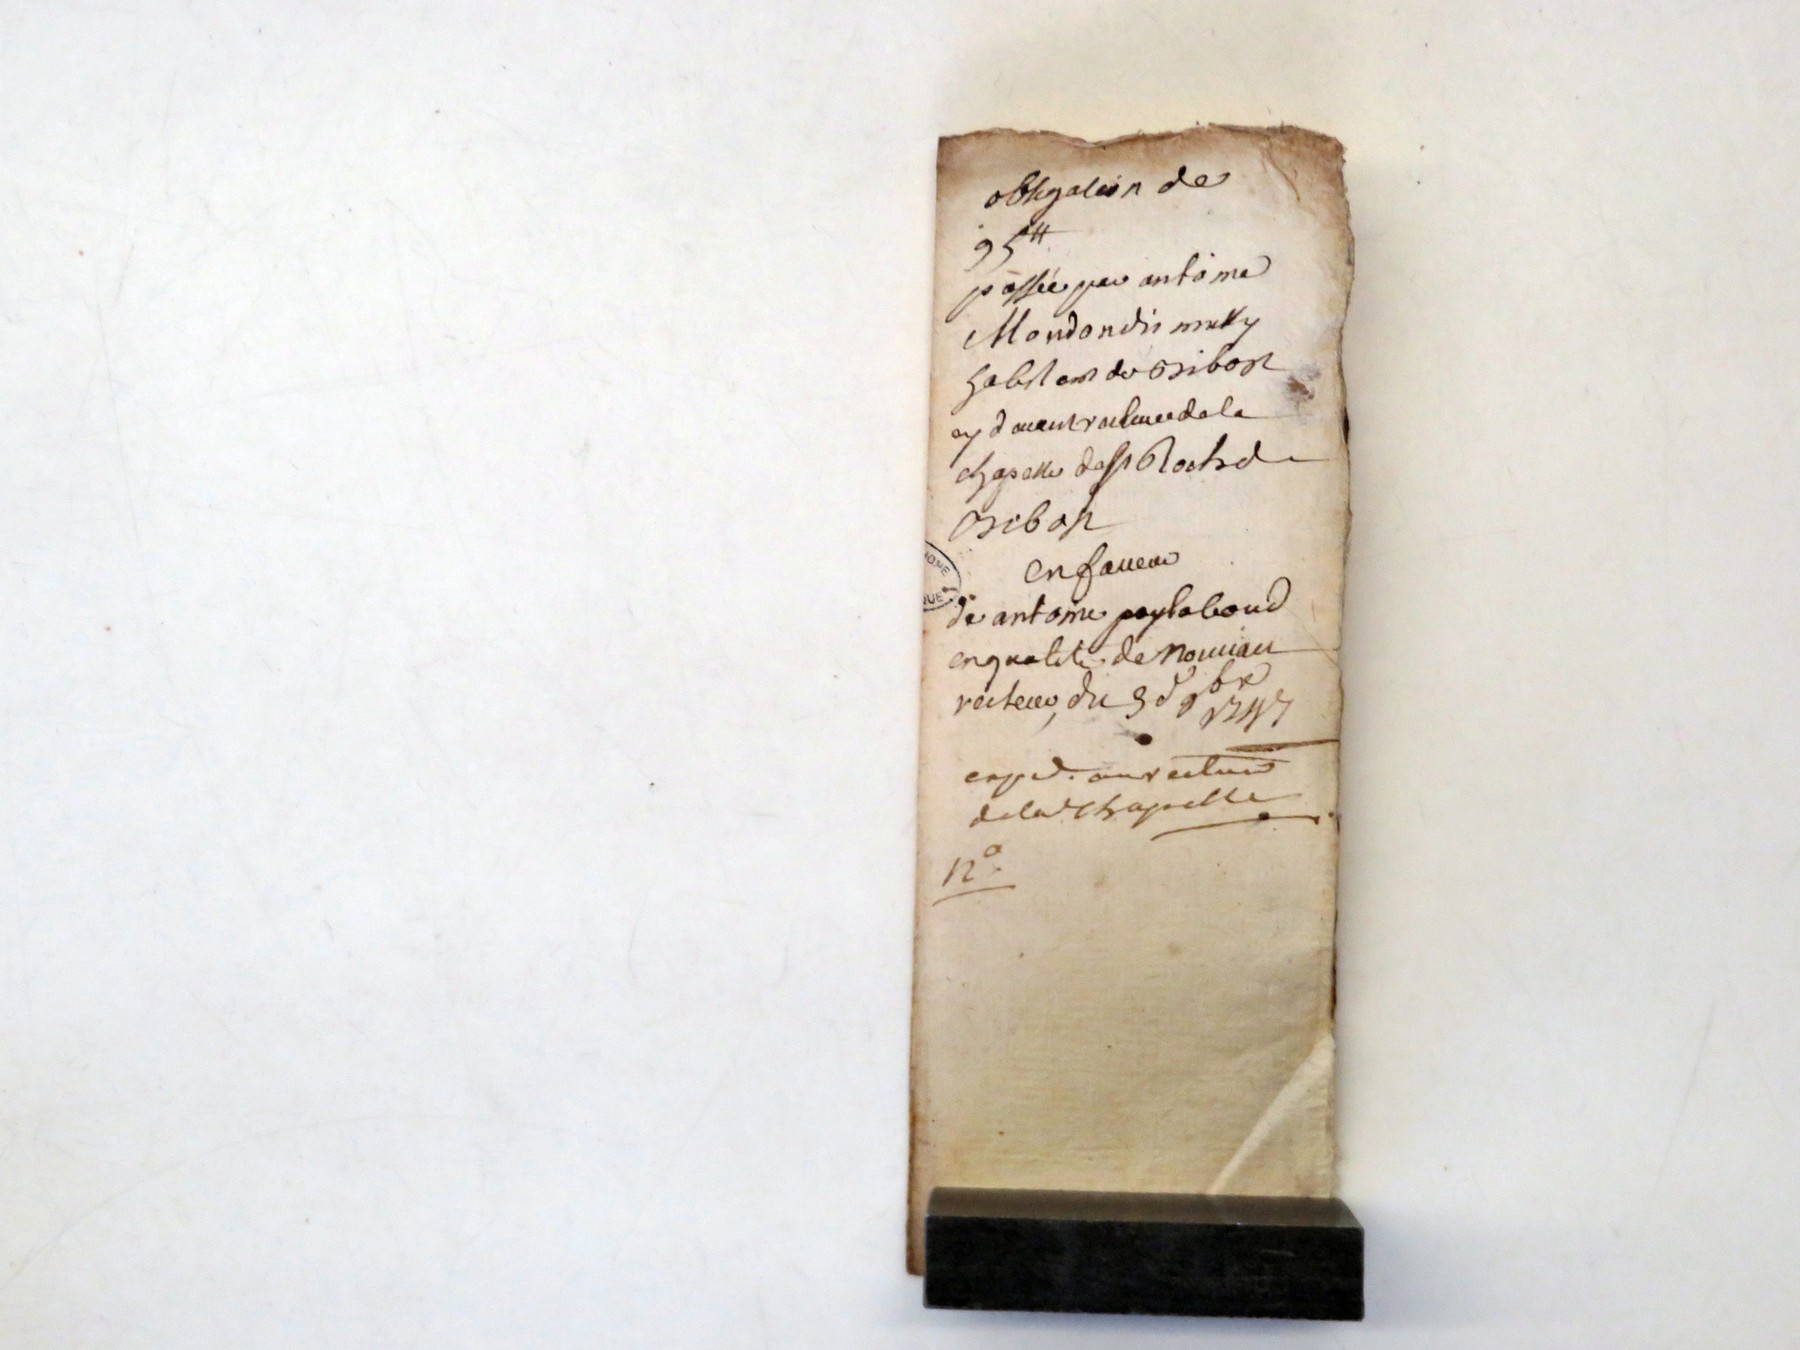 obligation de
95ᵗᵗ
passée par antoine
Mondon dit
habitant de Oribost
cy devant recteur de la
chapelle de St Roch de
Oribost
en faveur
de antoine peytaboud
en qualité de nouveau
recteur, du 3 d 9bre
1747
exped. au recteur
de la Chapelle
n°.